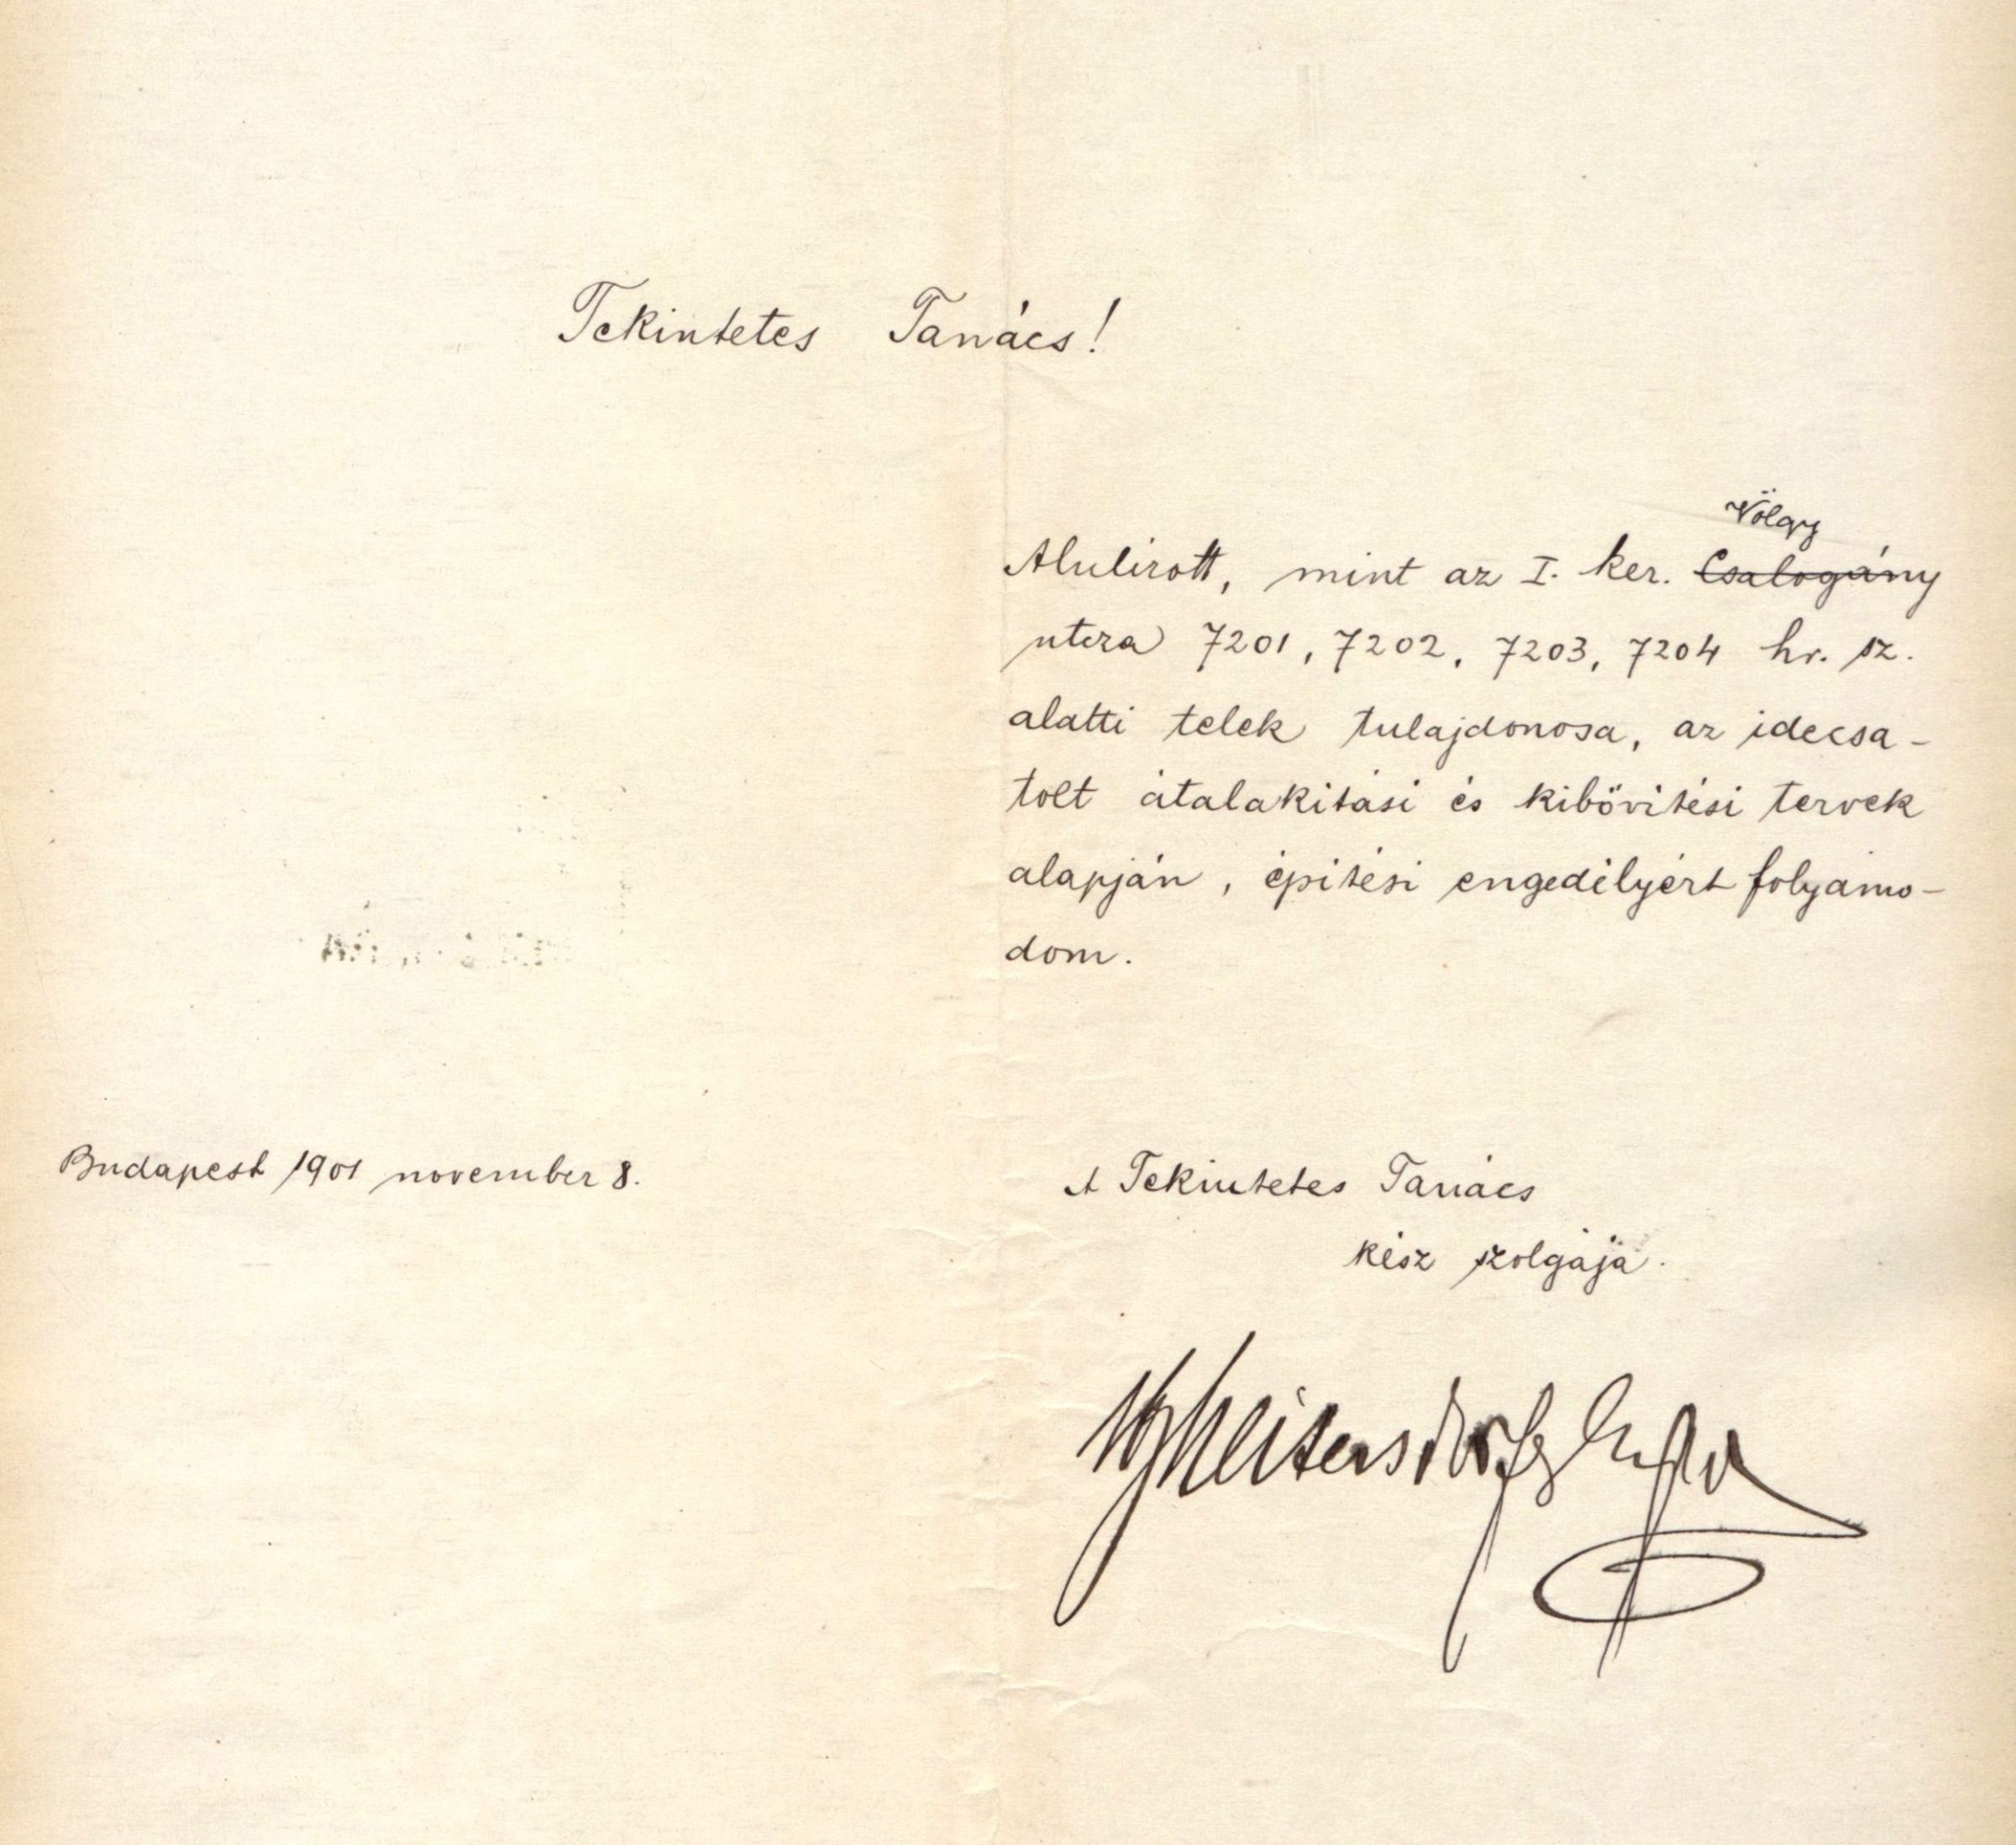 Tekintetes Tanács!
Völgy
Alulirott, mint az I. ker. Csalogány
utcza 7201, 7202, 7203, 7204 hr. sz.
alatti telek tulajdonosa, az idecsa-
tolt átalakitási és kibövitési tervek
alapján, épitési engedélyért folyamo-
dom.
Budapest 1901 november 8.
A Tekintetes Tanács
kész szolgája.